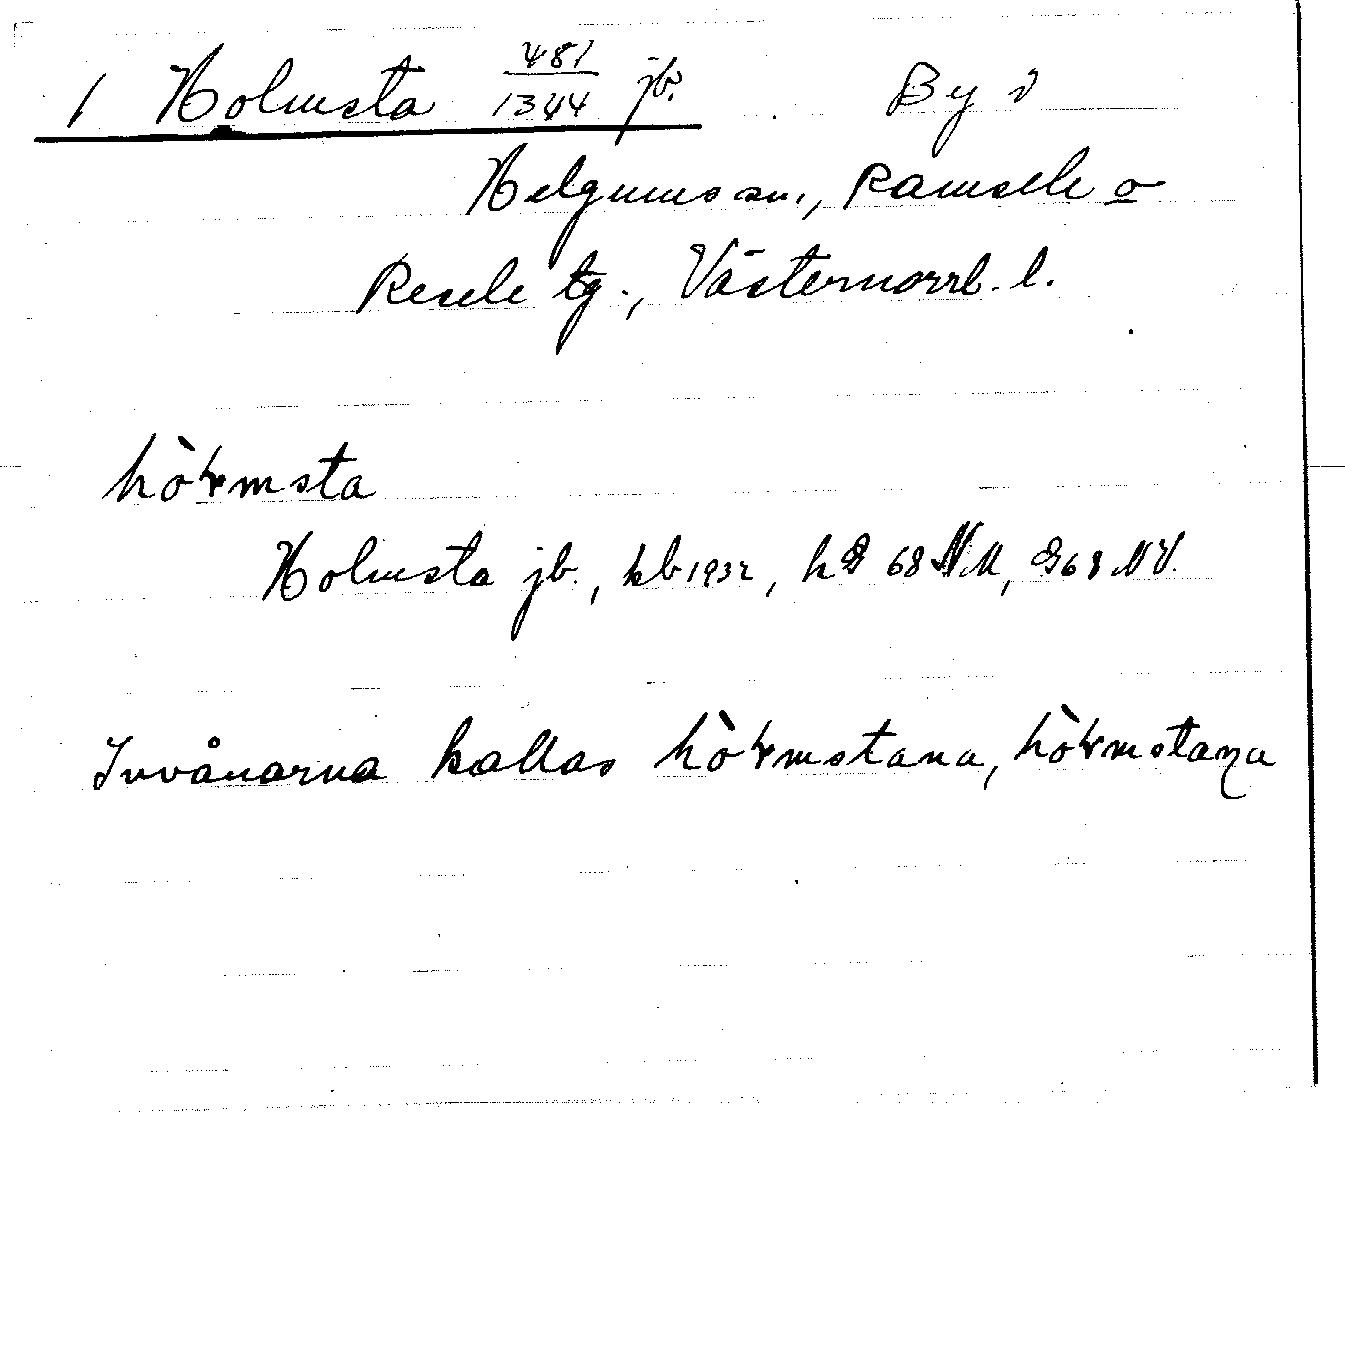 1 Holmsta 481/1344 jb. By i
Helgums sn., Ramsele o
Resele tg., Västernorrl. l.
hòɽmsta
Holmsta jb., kb 1932, 68
Invånarna kallas hòɽmstana, hòɽmstaṇa